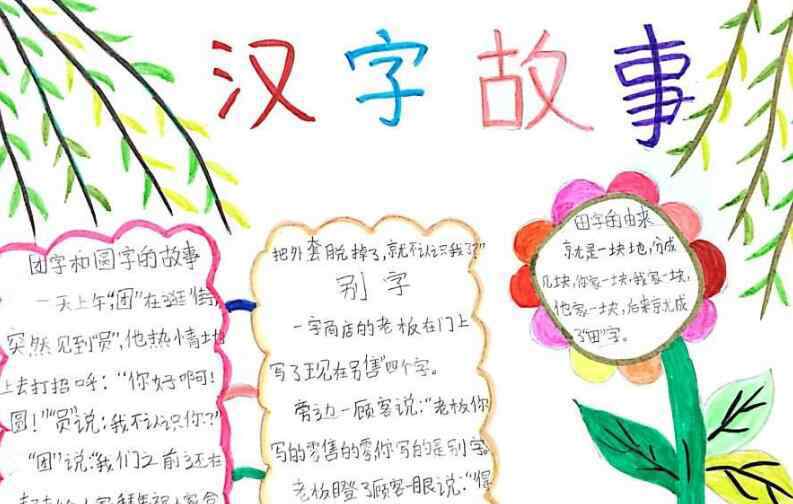 汉字故事
团字和圆字的故事
一天上午,"团"在逛街,
突然见到"员",他热情地
上去打招呼:"你好啊!
圆!""员"说:"我不认识你?"
"团"说:"我们之前还在
把外套脱掉了,就不认识我了?"
别字
一字商店的老板在门上
写了"现在另售"四个字。
旁边一顾客说:"老板你
写的零售的零你写的是别字。
老板瞪了顾客一眼说:"
田字的由来
就是一块地,分成
几块,你家一块,我家一块,
他家一块,后来就成
了"田"字。